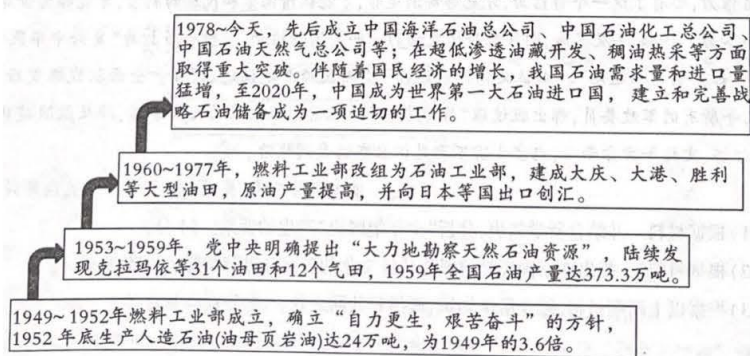 1978~今天，先后成立中国海洋石油总公司、中国石油化工总公司、
中国石油天然气总公司等；在超低渗透油藏开发、稠油热采等方面
取得重大突破。伴随着国民经济的增长，我国石油需求量和进口量
猛增，至2020年，中国成为世界第一大石油进口国，建立和完善战
略石油储备成为一项迫切的工作。
1960~1977年，燃料工业部改组为石油工业部，建成大庆、大港、胜利
等大型油田，原油产量提高，并向日本等国出口创汇。
1953~1959年，党中央明确提出“大力地勘察天然石油资源”，陆续发
现克拉玛依等31个油田和12个气田，1959年全国石油产量达373.3万吨。
1949~1952年燃料工业部成立，确立“自力更生，艰苦奋斗”的方针，
1952年底生产人造石油(油母页岩油)达24万吨，为1949年的3.6倍。